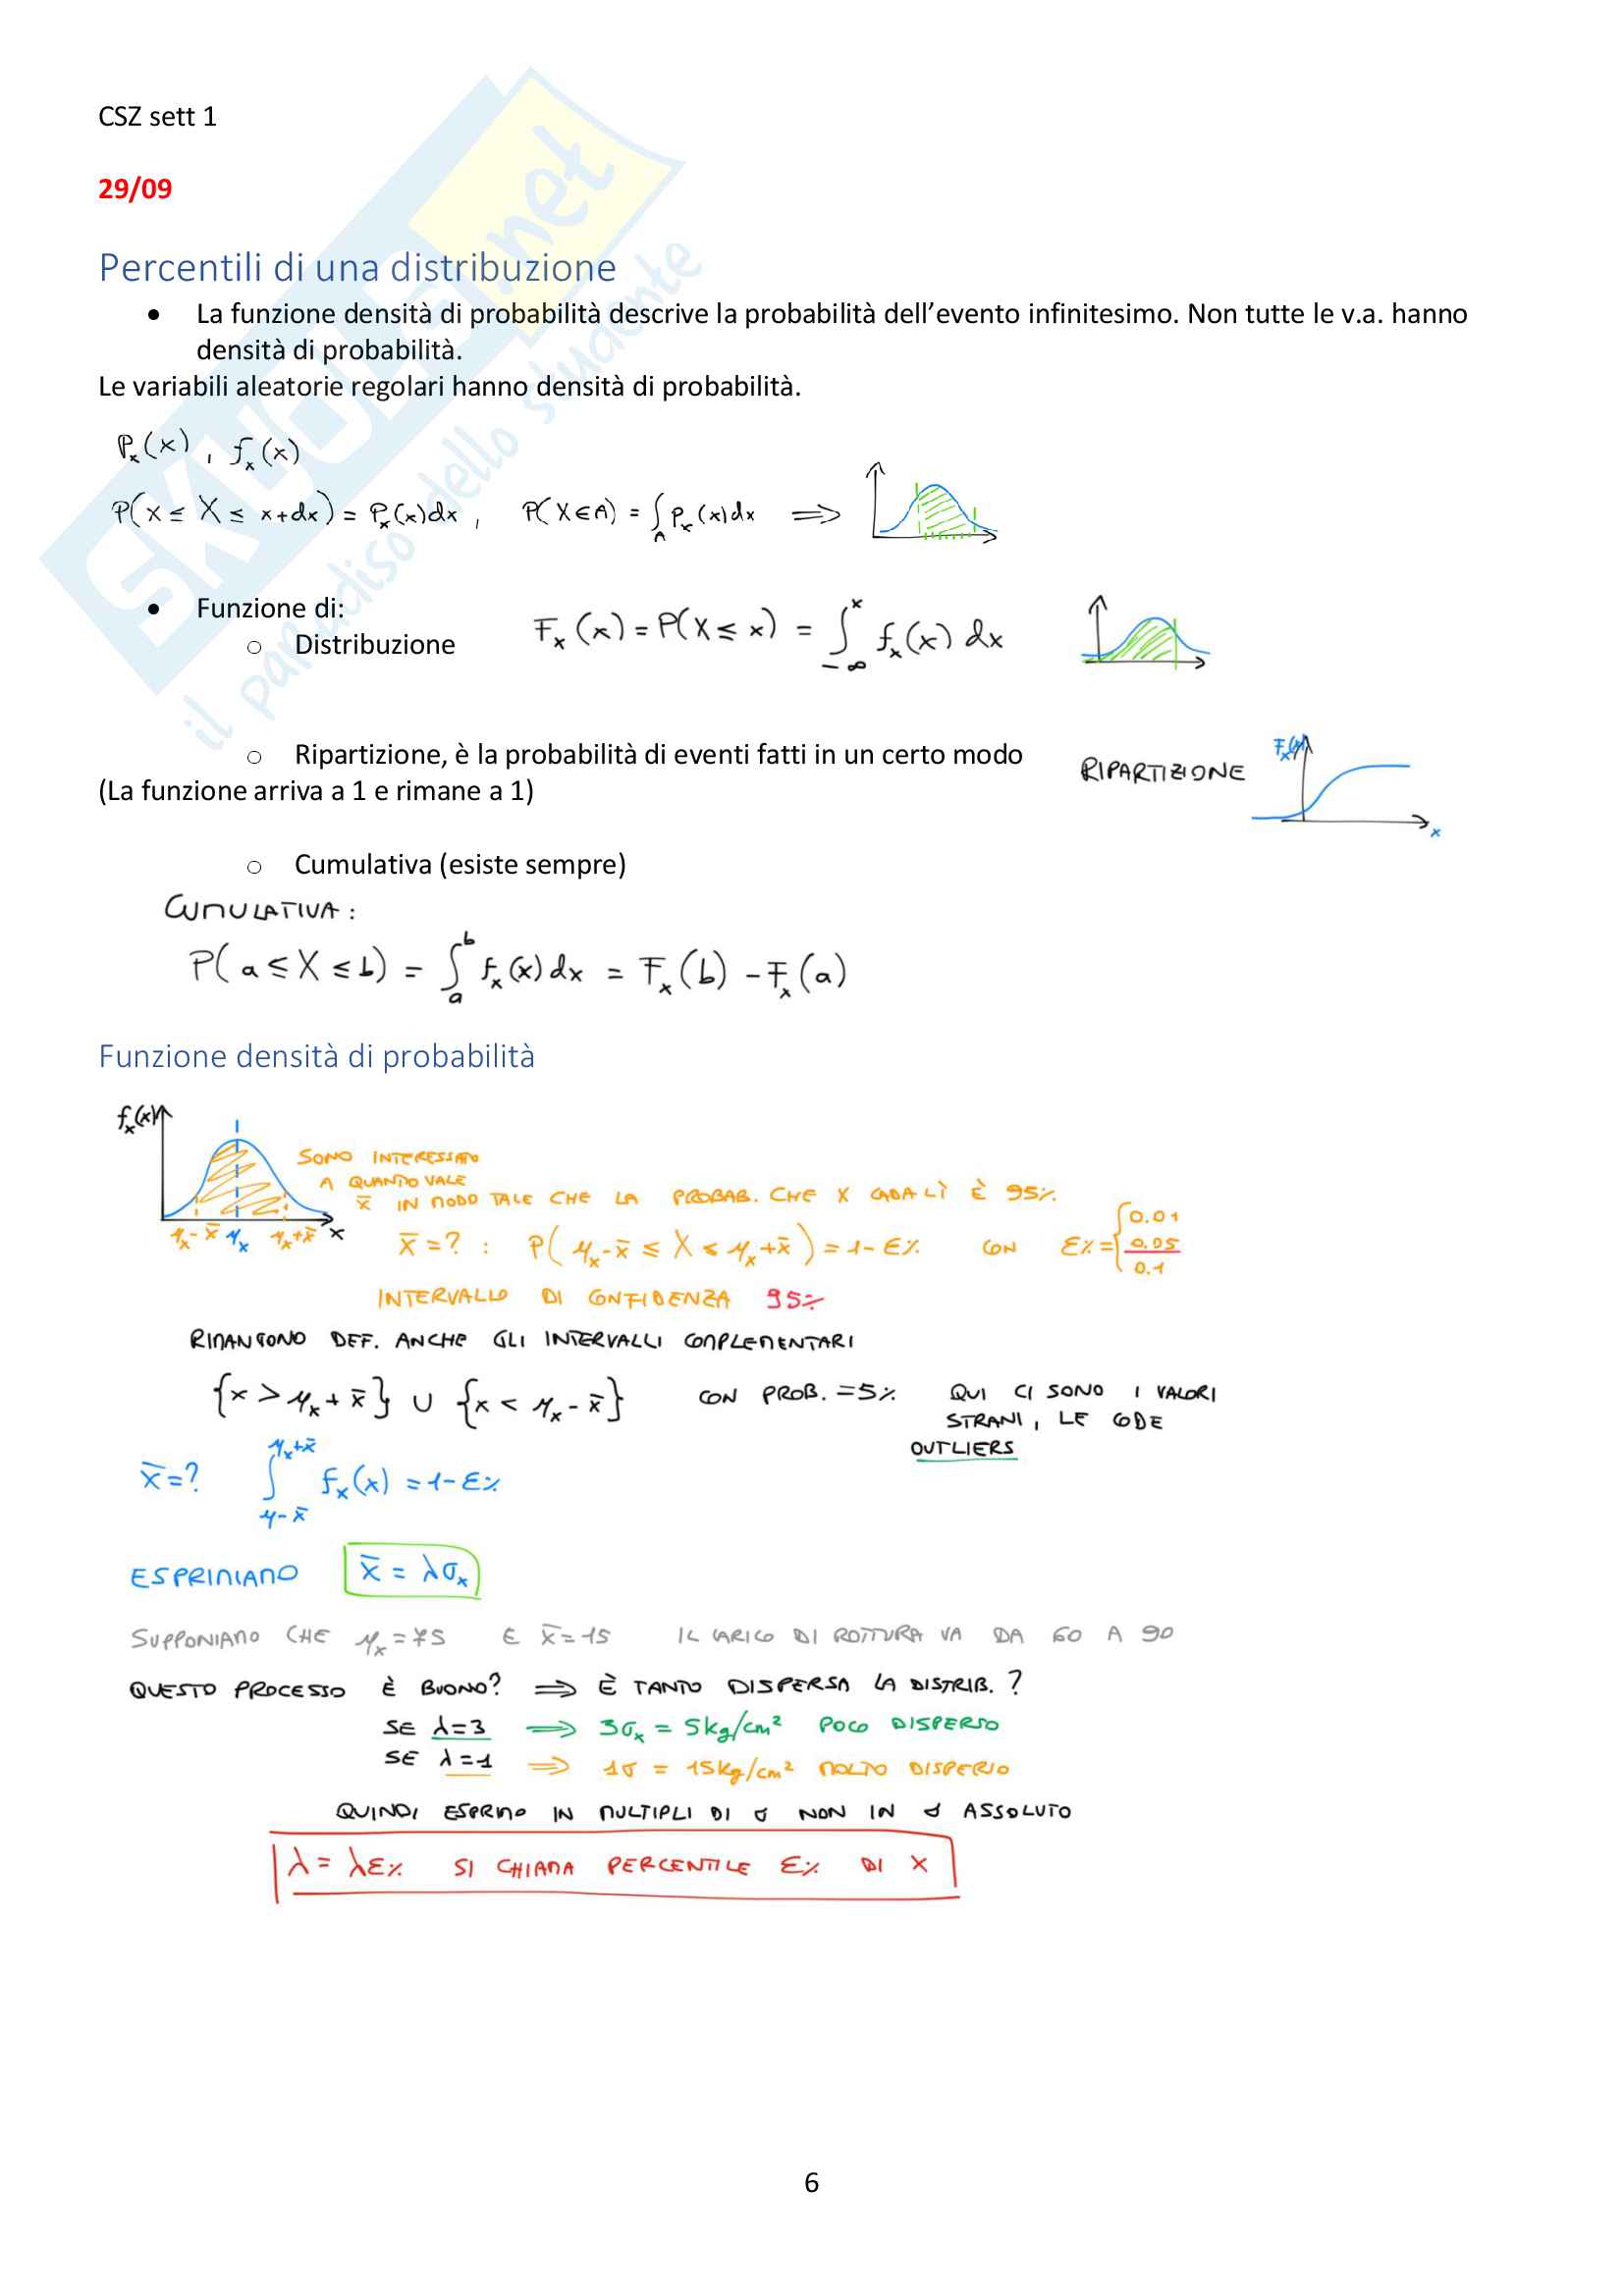 CSZ sett 1
29/09
Percentili di una distribuzione
• La funzione densità di probabilità descrive la probabilità dell'evento infinitesimo. Non tutte le v.a. hanno
densità di probabilità.
Le variabili aleatorie regolari hanno densità di probabilità.
Pₓ(x), fₓ(x)
P(x ≤ X ≤ x+dx) = Pₓ(x)dx, P(X∈A) = ∫_A Pₓ(x)dx ⟹
• Funzione di:
o Distribuzione Fₓ(x) = P(X ≤ x) = ∫_{-∞}^{x} fₓ(x) dx
o Ripartizione, è la probabilità di eventi fatti in un certo modo
RIPARTIZIONE Fₓ(x) x
(La funzione arriva a 1 e rimane a 1)
o Cumulativa (esiste sempre)
CUMULATIVA:
P(a ≤ X ≤ b) = ∫_a^b fₓ(x) dx = Fₓ(b) - Fₓ(a)
Funzione densità di probabilità
fₓ(x)
SONO INTERESSATO
A QUANTO VALE
x̄ IN MODO TALE CHE LA PROBAB. CHE X CADA LÌ È 95%.
μₓ-x̄ μₓ μₓ+x̄ x
x̄=? : P(μₓ-x̄ ≤ X ≤ μₓ+x̄) = 1-ε% CON ε% = { 0.01
0.05
0.1
INTERVALLO DI CONFIDENZA 95%
RIMANGONO DEF. ANCHE GLI INTERVALLI COMPLEMENTARI
{x > μₓ + x̄} ∪ {x < μₓ - x̄} CON PROB. = 5% QUI CI SONO I VALORI
STRANI, LE CODE
OUTLIERS
x̄=? ∫_{μ-x̄}^{μₓ+x̄} fₓ(x) = 1-ε%
ESPRIMIAMO x̄ = λσₓ
SUPPONIAMO CHE μₓ=75 E x̄=15 IL CARICO DI ROTTURA VA DA 60 A 90
QUESTO PROCESSO È BUONO? ⟹ È TANTO DISPERSA LA DISTRIB.?
SE λ=3 ⟹ 3σₓ = 5kg/cm² POCO DISPERSO
SE λ=1 ⟹ 1σ = 15kg/cm² MOLTO DISPERSO
QUINDI ESPRIMO IN MULTIPLI DI σ NON IN σ ASSOLUTO
λ = λε% SI CHIAMA PERCENTILE ε% DI X
6
SKUOLA.net
il paradiso dello studente